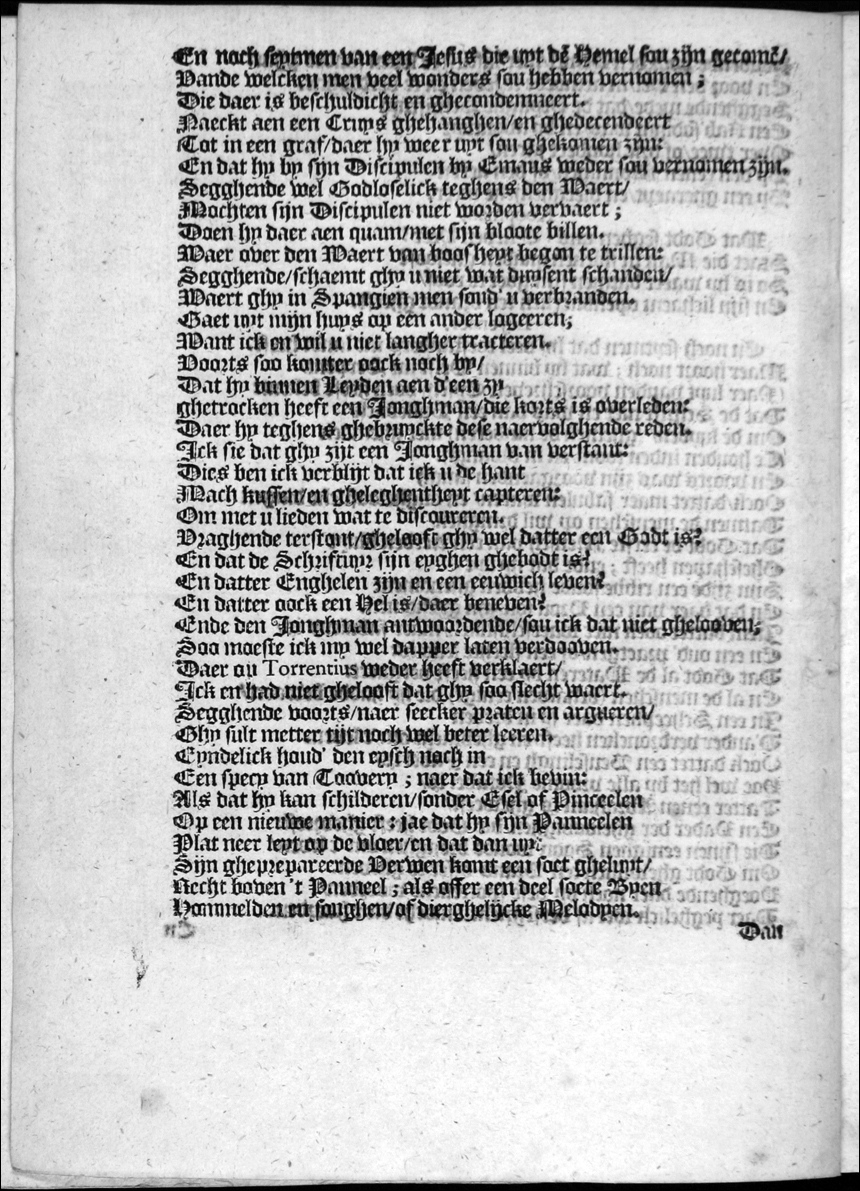 En noch seytmen van een Jesus die uyt dē Hemel sou zijn gecomē/
Vande welcken men veel wonders sou hebben vernomen ;
Die daer is beschuldicht en ghecondemneert.
Naeckt aen een Cruys ghehanghen/en ghedecendeert
Tot in een graf/daer hy weer uyt sou ghekomen zijn:
En dat hy by sijn Discipulen by Emaus weder sou vernomen zijn.
Segghende wel Godloselick teghens den Waert/
Mochten sijn Discipulen niet worden vervaert ;
Doen hy daer aen quam/met sijn bloote billen.
Waer over den Waert van boosheyt began te trillen:
Segghende/schaemt ghy u niet wat duysent schanden/
Waert ghy in Spangien men soud' u verbranden.
Gaet uyt mijn huys op een ander logeeren;
Want ick en wil u niet langher tracteren.
Voorts soo komter oock noch by/
Dat hy binnen Leyden aen d'een zy
ghetrocken heeft een Jonghman/die korts is overleden:
Daer hy teghens ghebruyckte dese naervolghende reden.
Ick sie dat ghy zijt een Jonghman van verstant:
Dies ben ick verblijt dat ick u de hant
Mach kussen/en gheleghentheyt capteren:
Om met u lieden wat te discoureren.
Vraghende terstont/ghelooft ghy wel datter een Godt is?
En dat de Schriftuyr sijn eyghen ghebodt is?
En datter Enghelen zijn en een eeuwich leven?
En datter oock een Hel is/daer beneven?
Ende den Jonghman antwoordende/sou ick dat niet ghelooven;
Soo moeste ick my wel dapper laten verdooven.
Daer ou Torrentius weder heeft verklaert/
Ick en had niet ghelooft dat ghy soo slecht waert.
Segghende voorts/naer seecker praten en argueren/
Ghy sult metter tijt noch wel beter leeren.
Eyndelick houd' den eysch noch in
Een specy van Toovery ; naer dat ick bevin:
Als dat hy kan schilderen/sonder Esel of Pinceelen
Op een nieuwe manier : jae dat hy sijn Panneelen
Plat neer leyt op de vloer/en dat dan uyt
Sijn gheprepareerde Verwen komt een soet gheluyt/
Recht boven 't Panneel ; als offer een deel soete Byen
Hommelden en songhen/of dierghelijcke Melodyen.
Dan